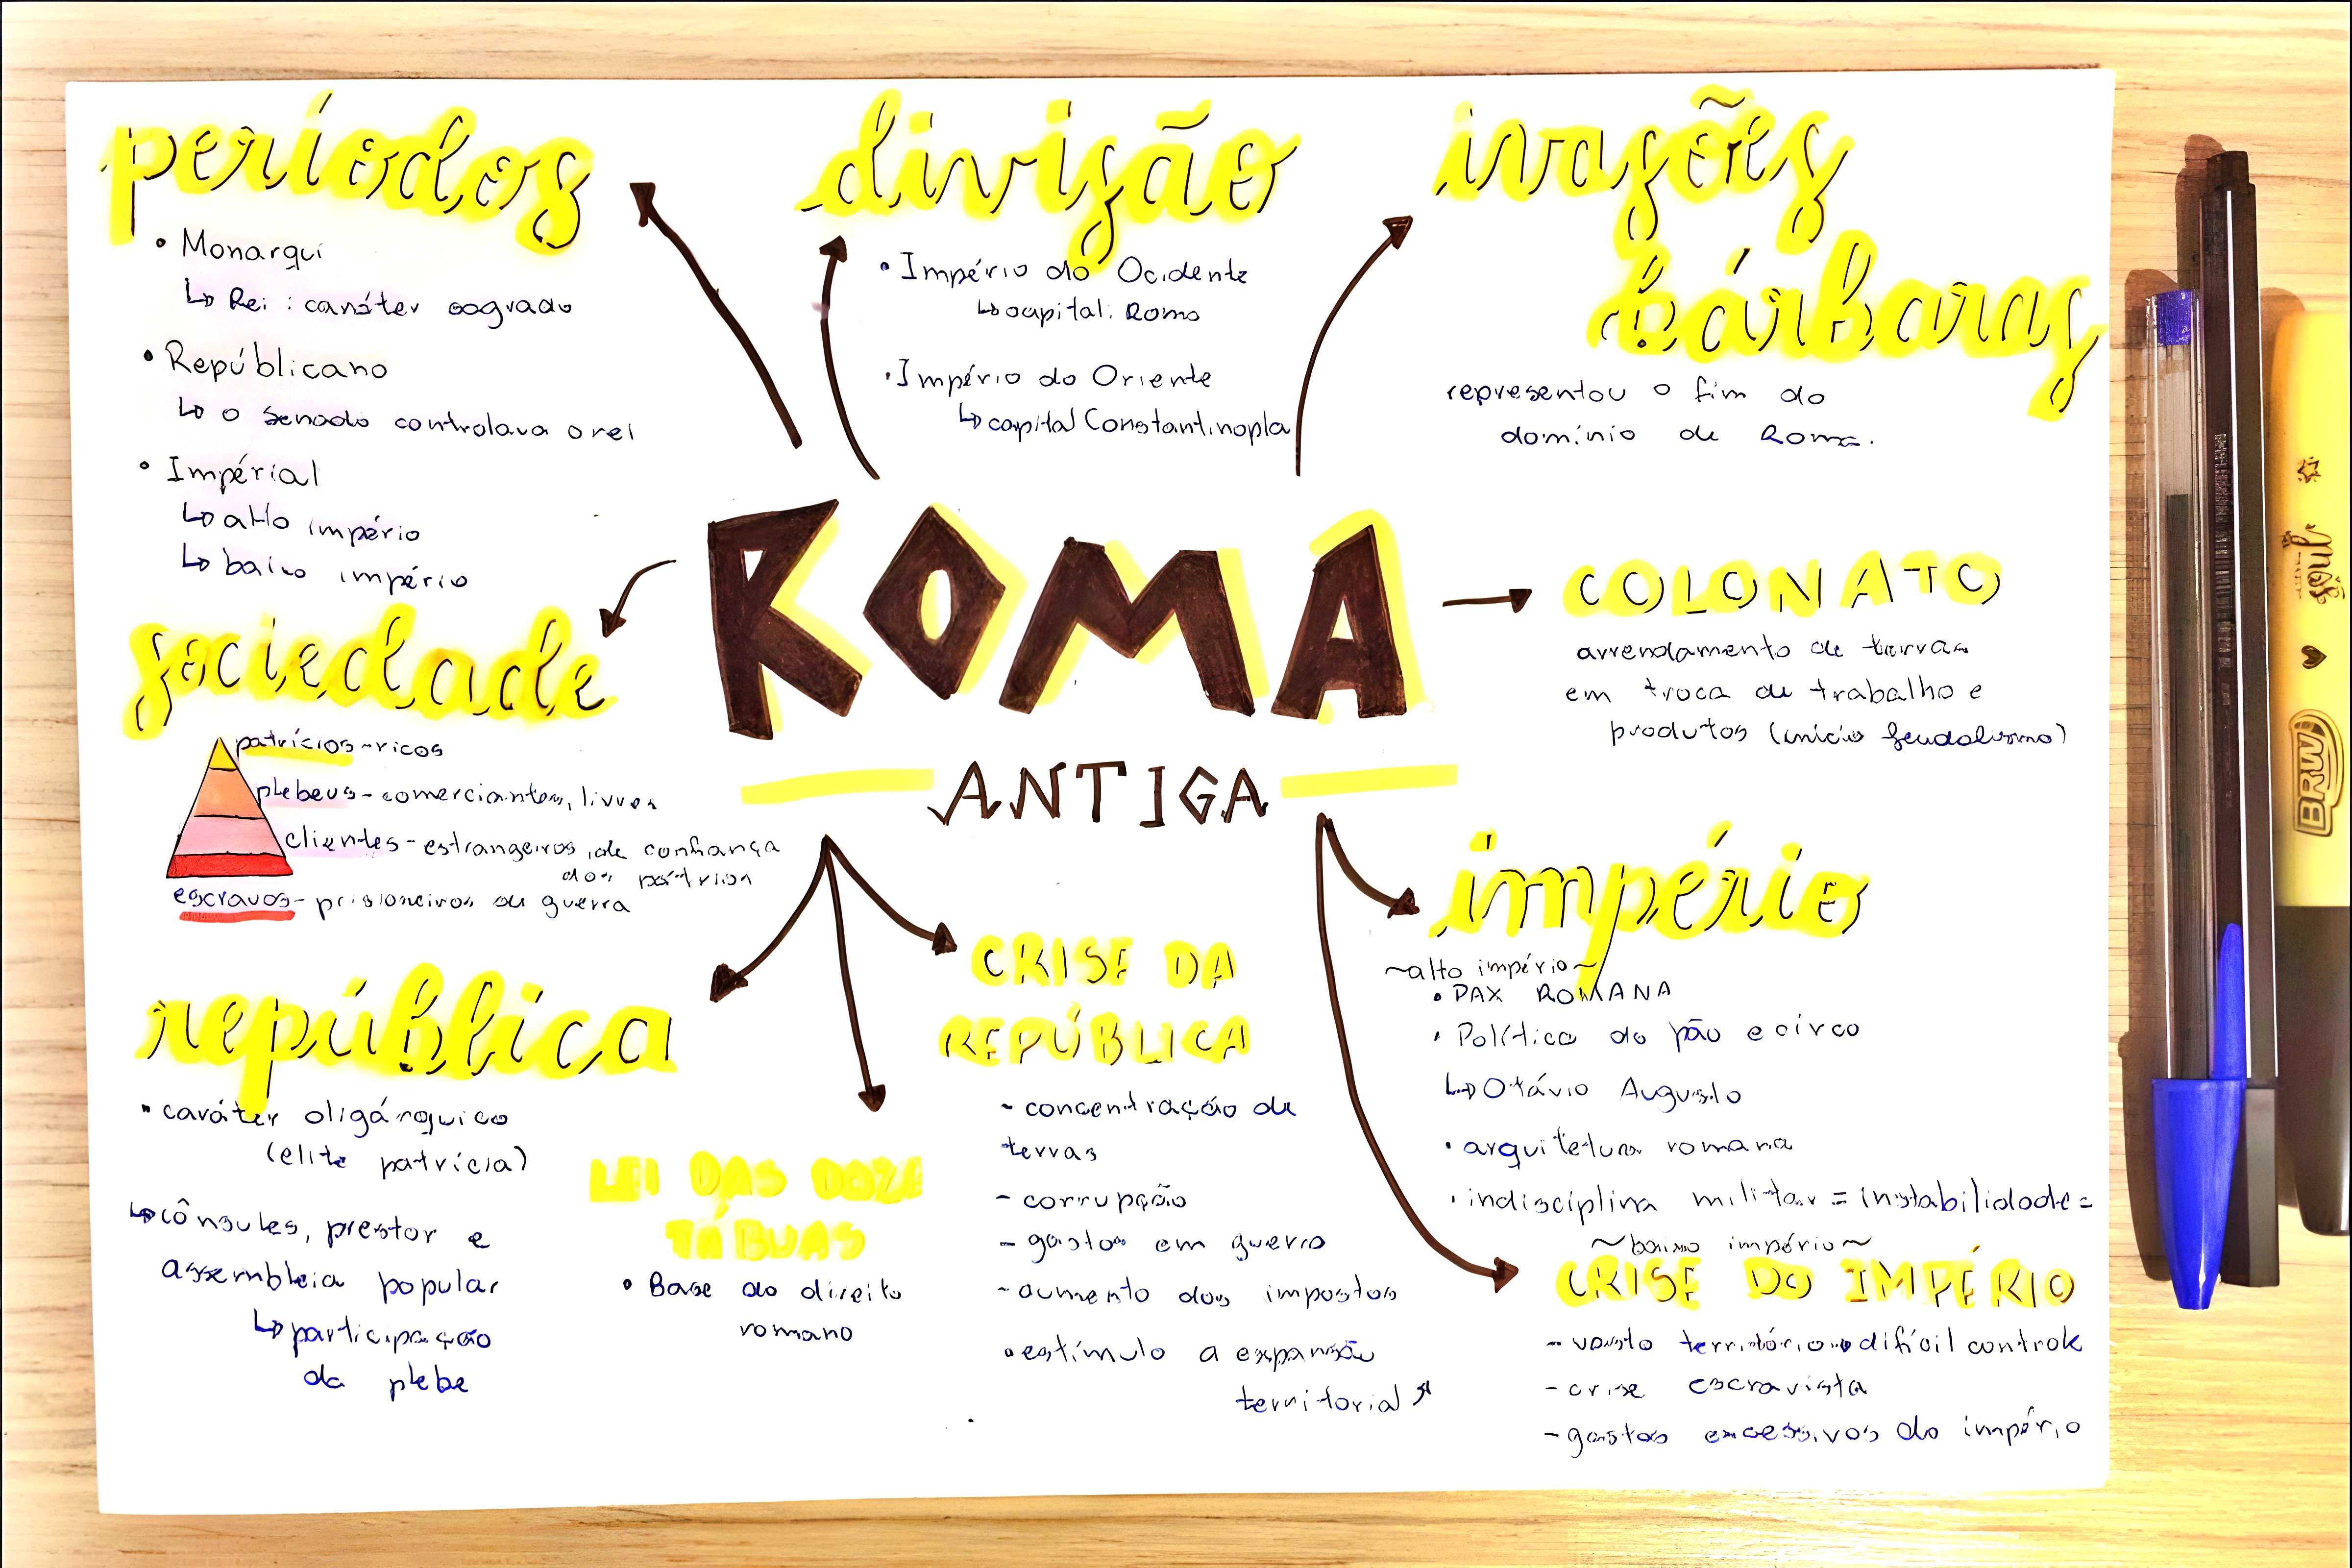 períodos
• Monarqui
↳ Rei : caráter sagrado
• Repúblicano
↳ o senado controlava o rei
• Impérial
↳ alto império
↳ baixo império
divisão
• Império do Ocidente
↳ capital: Roma
• Império do Oriente
↳ capital Constantinopla
invasões
bárbaras
representou o fim do
domínio de Roma.
ROMA
ANTIGA
COLONATO
arrendamento de terras
em troca de trabalho e
produtos (início feudalismo)
sociedade
patrícios - ricos
plebeus - comerciantes, livres
clientes - estrangeiros, de confiança
dos
escravos - prisioneiros de guerra
república
• caráter oligárquico
(elite patrícia)
↳ cônsules, prestor e
assembleia popular
↳ participação
da plebe
LEI DAS DOZE
TÁBUAS
• Base do direito
romano
CRISE DA
REPÚBLICA
- concentração de
terras
- corrupção
- gastos em guerra
- aumento dos impostos
• estímulo a expansão
territorial
império
~alto império~
• PAX ROMANA
• Política do pão e circo
↳ Otávio Augusto
• arquitetura romana
• indisciplina militar = instabilidade =
~baixo império~
CRISE DO IMPÉRIO
- vasto território → difícil controle
- crise escravista
- gastos excessivos do império
soul
BRW